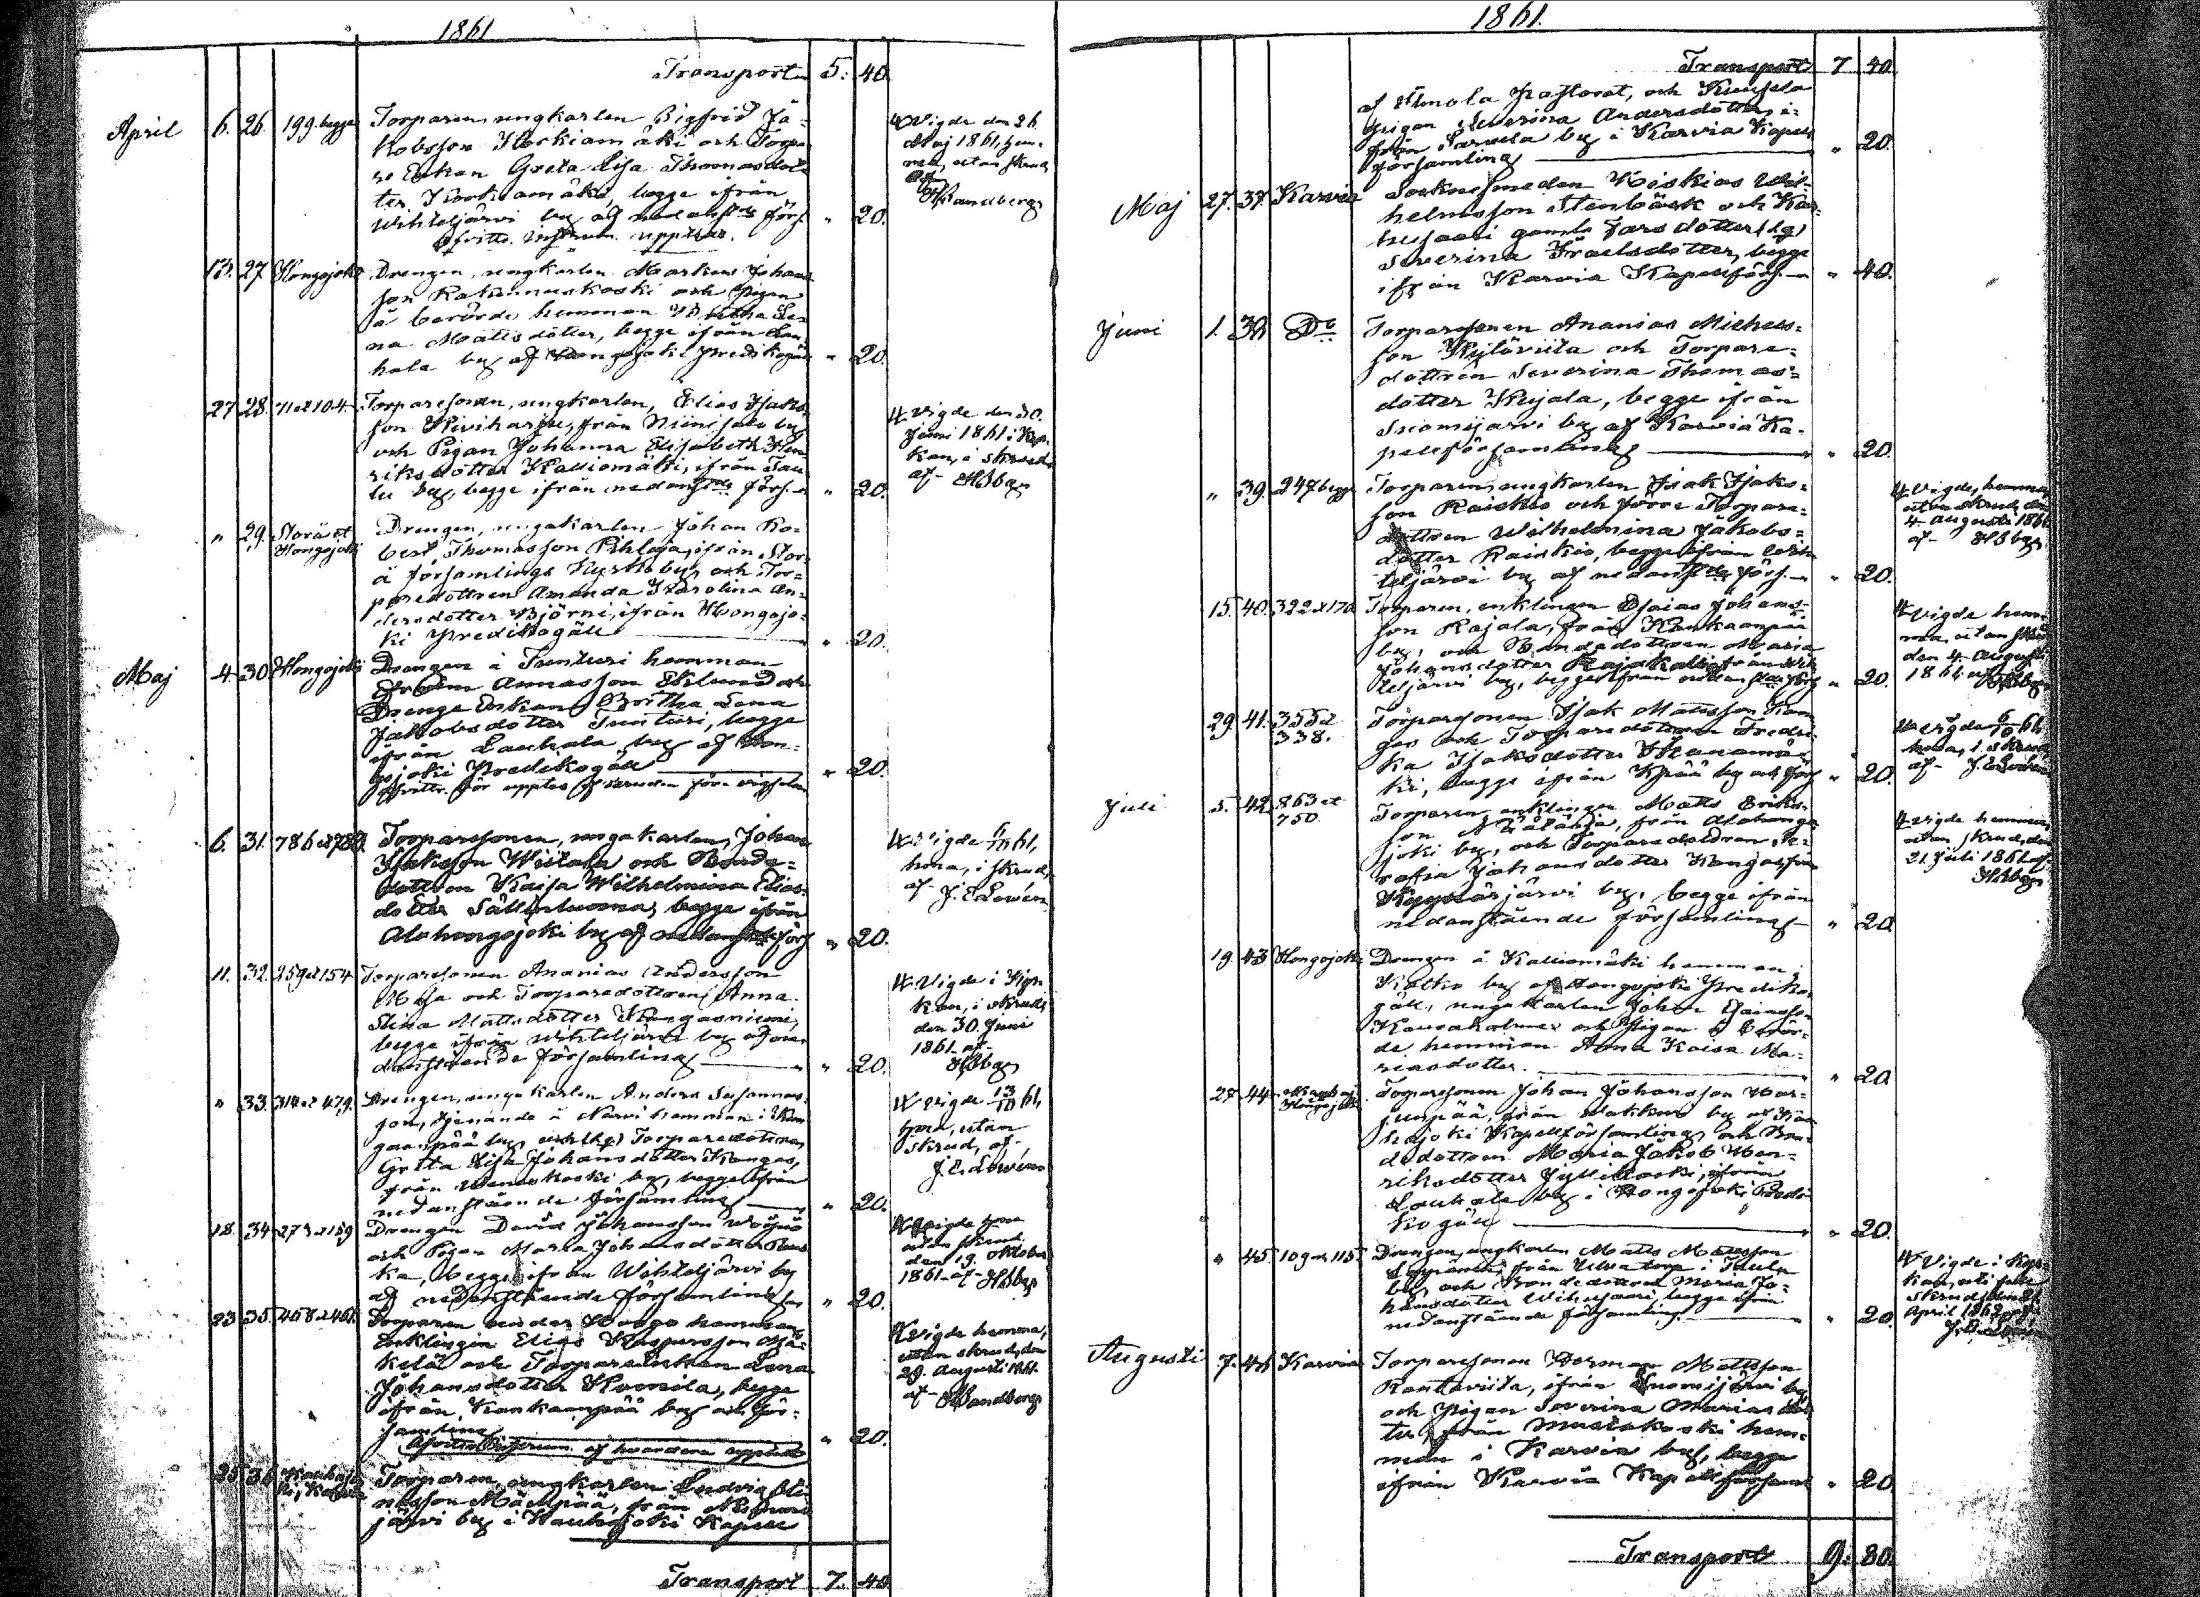 1861
Transport 5. 40.
April 6. 26. 199. begge Torparen, ungkarlen Sigfrid Ja-
kobsson Koskiamäki och Torpa-
re Enkan Greta Lisa Thomasdot-
ter Koskiamäki, begge ifrån
Wihteljärvi by af nedanst:de förs. " 20.
Afvittr. instrum. upptes.
Vigde den 26.
Maj 1861, hem-
ma, utan skrud
af
Sandberg
13. 27. Hongojoki Drengen, ungkarlen Markus Johans-
son Katunuskoski och Pigan
å berörde hemman Britha Le-
na Mattsdotter, begge ifrån Lau-
hala by af Hongojoki Predikogäll " 20.
27. 28. 71 et 104. Torparesonen, ungkarlen, Elias Isaks-
son Kiviharju, från Niinisalo by
och Pigan Johanna Elisabeth Hen-
riksdotter Kalliomäki, ifrån Tau-
lu by, begge ifrån nedanst:de förs. " 20.
Vigde den 30.
Juni 1861 i Kyr-
kan, i skrud
af Hsbg
" 29. Storå et
Hongojoki
Drengen, ungakarlen Johan Ro-
bert Thomasson Pihlaja, ifrån Stor-
å församlings by, och Tor-
paredottren Amanda Karolina An-
dersdotter Björni, ifrån Hongojo-
ki Predikogäll " 20.
Maj 4. 30. Hongojoki Drengen å Tunturi hemman
Annasson Eklund och
Drenge Enkan Britha Lena
Jakobsdotter Tunturi, begge
ifrån Lauhala by af Hon-
gojoki Predikogäll " 20.
Afvittr. för upptes af före vigseln
6. 31. 786 et 780. Torparesonen, ungakarlen, Johan
Isaksson Wiitala och Bonde-
dottren Kaisa Wilhelmina Elias-
dotter Sällinluoma, begge ifrån
Alahongojoki by af nedanst:de förs " 20.
Vigde 61,
hos, i skrud,
af J. E. Lovén
11. 32. 259 et 154 Torparesonen Ananias Andersson
Maja och Torparedottren Anna
Stina Mattsdotter Kangasniemi,
begge ifrån Wihteljärvi by af ne-
danstående församling " 20.
Vigde i Kyr-
kan, i skrud,
den 30. Juni
1861 af
Hsbg
" 33. 314 et 479. Drengen, unga karlen Anders Susannas-
son, tjenande å Narvi hemman i Kan-
gaanpää by, och (lg) Torparedottren
Greta Lisa Johansdotter Kangas,
från Weneskoski by, begge ifrån
nedanstående församling " 20.
Vigde 13/10 61,
hos, utan
skrud, af
J. E. Lovén
18. 34. 273 et 159 Drengen David Johansson
och Pigan Maria Johansdotter
ka, begge ifrån Wihteljärvi by
af nedanstående församling " 20.
Vigde
utan skrud
den 19. Oktober
1861 af Hsbg
23. 35. 458 et 461. Torparen under Hongo hemman
Enklingen Elias Kaspersson Mä-
kelä och Torpare Enkan Lena
Johansdotter Homila, begge
ifrån Kankaanpää by och för-
samling " 20.
Afvittr. Instrum. af hvardera upptes
Vigde hemma,
utan skrud, den
29. Augusti 1861
af Sandberg
25. 36. Kauhajo-
ki, Karvia
Torparen, ungkarlen Ludvig
Mäenpää, från
järvi by i Kauhajoki Kapell
Transport 7. 40.
1861.
Transport 7 40.
af Ilmola Pastorat, och
Pigan Severina Andersdotter i-
från Sarvela by i Karvia Kapell
församling " 20.
Maj 27. 37. Karvia Sockensmeden Kiskias Wil-
helmsson Stenbäck och Kar-
husaari gamle Farsdotter (lg)
Severina Israelsdotter, begge
ifrån Karvia Kapellförs. " 40.
Juni 1. 38. Do Torparesonen Ananias Michels-
son Kyläviita och Torpare-
dottren Severina Thomas-
dotter Kujala, begge ifrån
Suomijärvi by af Karvia Ka-
pellförsamling " 20.
" 39. 247 begge Torparen, ungkarlen Isak Isaks-
son Raiskio och förre Torpare-
dottren Wilhelmina Jakobs-
dotter Raiskio, begge ifrån Wih-
teljärvi by af nedanst:de förs. " 20.
Vigde, hemma
utan skrud, den
4. Augusti 1861
af Hsbg
15. 40. 322 et 170 Torparen, enklingen Esaias Johans-
son Rajala, från Kankaanpää
by, och Bondedottren Maria
Johansdotter ifrån Wih-
teljärvi by, begge ifrån nedanst:de förs " 20.
Vigde hem-
ma, utan skrud
den 4. Augusti
1861 af Hsbg
29. 41. 355 et
338.
Torparesonen Isak Mattsson Kan-
gas och Torparedottren Fredri-
ka Isaksdotter
ki, begge ifrån by och förs " 20.
Vigde 6/10 61
hos, i skrud
af J. E. Lovén
Juli 5. 42. 863 et
750.
Torparen, enklingen Matts Eriks-
son från Alahongo-
joki by, och Torparedottren Se-
rafia Johansdotter Kangas från
Kyynärjärvi by, begge ifrån
nedanstående församling " 20
Vigde hemma,
utan skrud, den
21. Juli 1861 af
Hsbg
19 43 Hongojoki Drengen å Kalliomäki hemman i
Katko by af Hongojoki Prediko-
gäll, ungakarlen Johan Esaiasson
och Pigan å berör-
de hemman Anna Kaisa Ma-
riasdotter. " 20
27. 44. Kauhajoki
Hongojoki
Torparesonen Johan Johansson Har-
junpää, från by af Kau-
hajoki Kapellförsamling och Bon-
dedottren Maria Jakob Hen-
riksdotter Jyllikoski, ifrån
Lauhala by i Hongojoki Predi-
kogäll " 20.
" 45. 109 et 115. Drengen, ungkarlen Matts Mattsson
från torp i Taulu
by, och Bondedottren Maria Jo-
hansdotter Wihusaari, begge ifrån
nedanstående församling. " 20.
Vigde i Kyr-
kan,
skrud, den 21.
April 1862 af
J. E. Lovén
Augusti 7. 46. Karvia Torparesonen Herman Mattsson
Rantaviita, ifrån Suomijärvi by,
och Pigan Severina Mariasdot-
ter, från Mustakoski hem-
man i Karvia by, begge
ifrån Karvia Kapellförsaml " 20
Transport 9. 80.